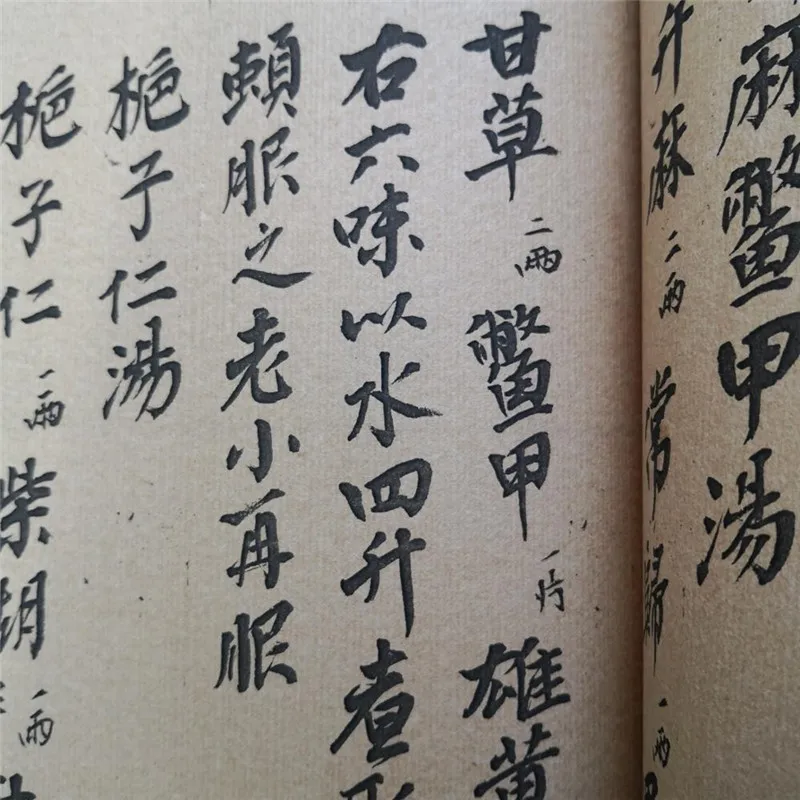 麻鱉甲湯
升麻二兩當歸一兩
甘草二兩鱉甲一片雄黄
右六味以水四升煮
頓服之老小再服
梔子仁湯
梔子仁一兩柴胡一兩